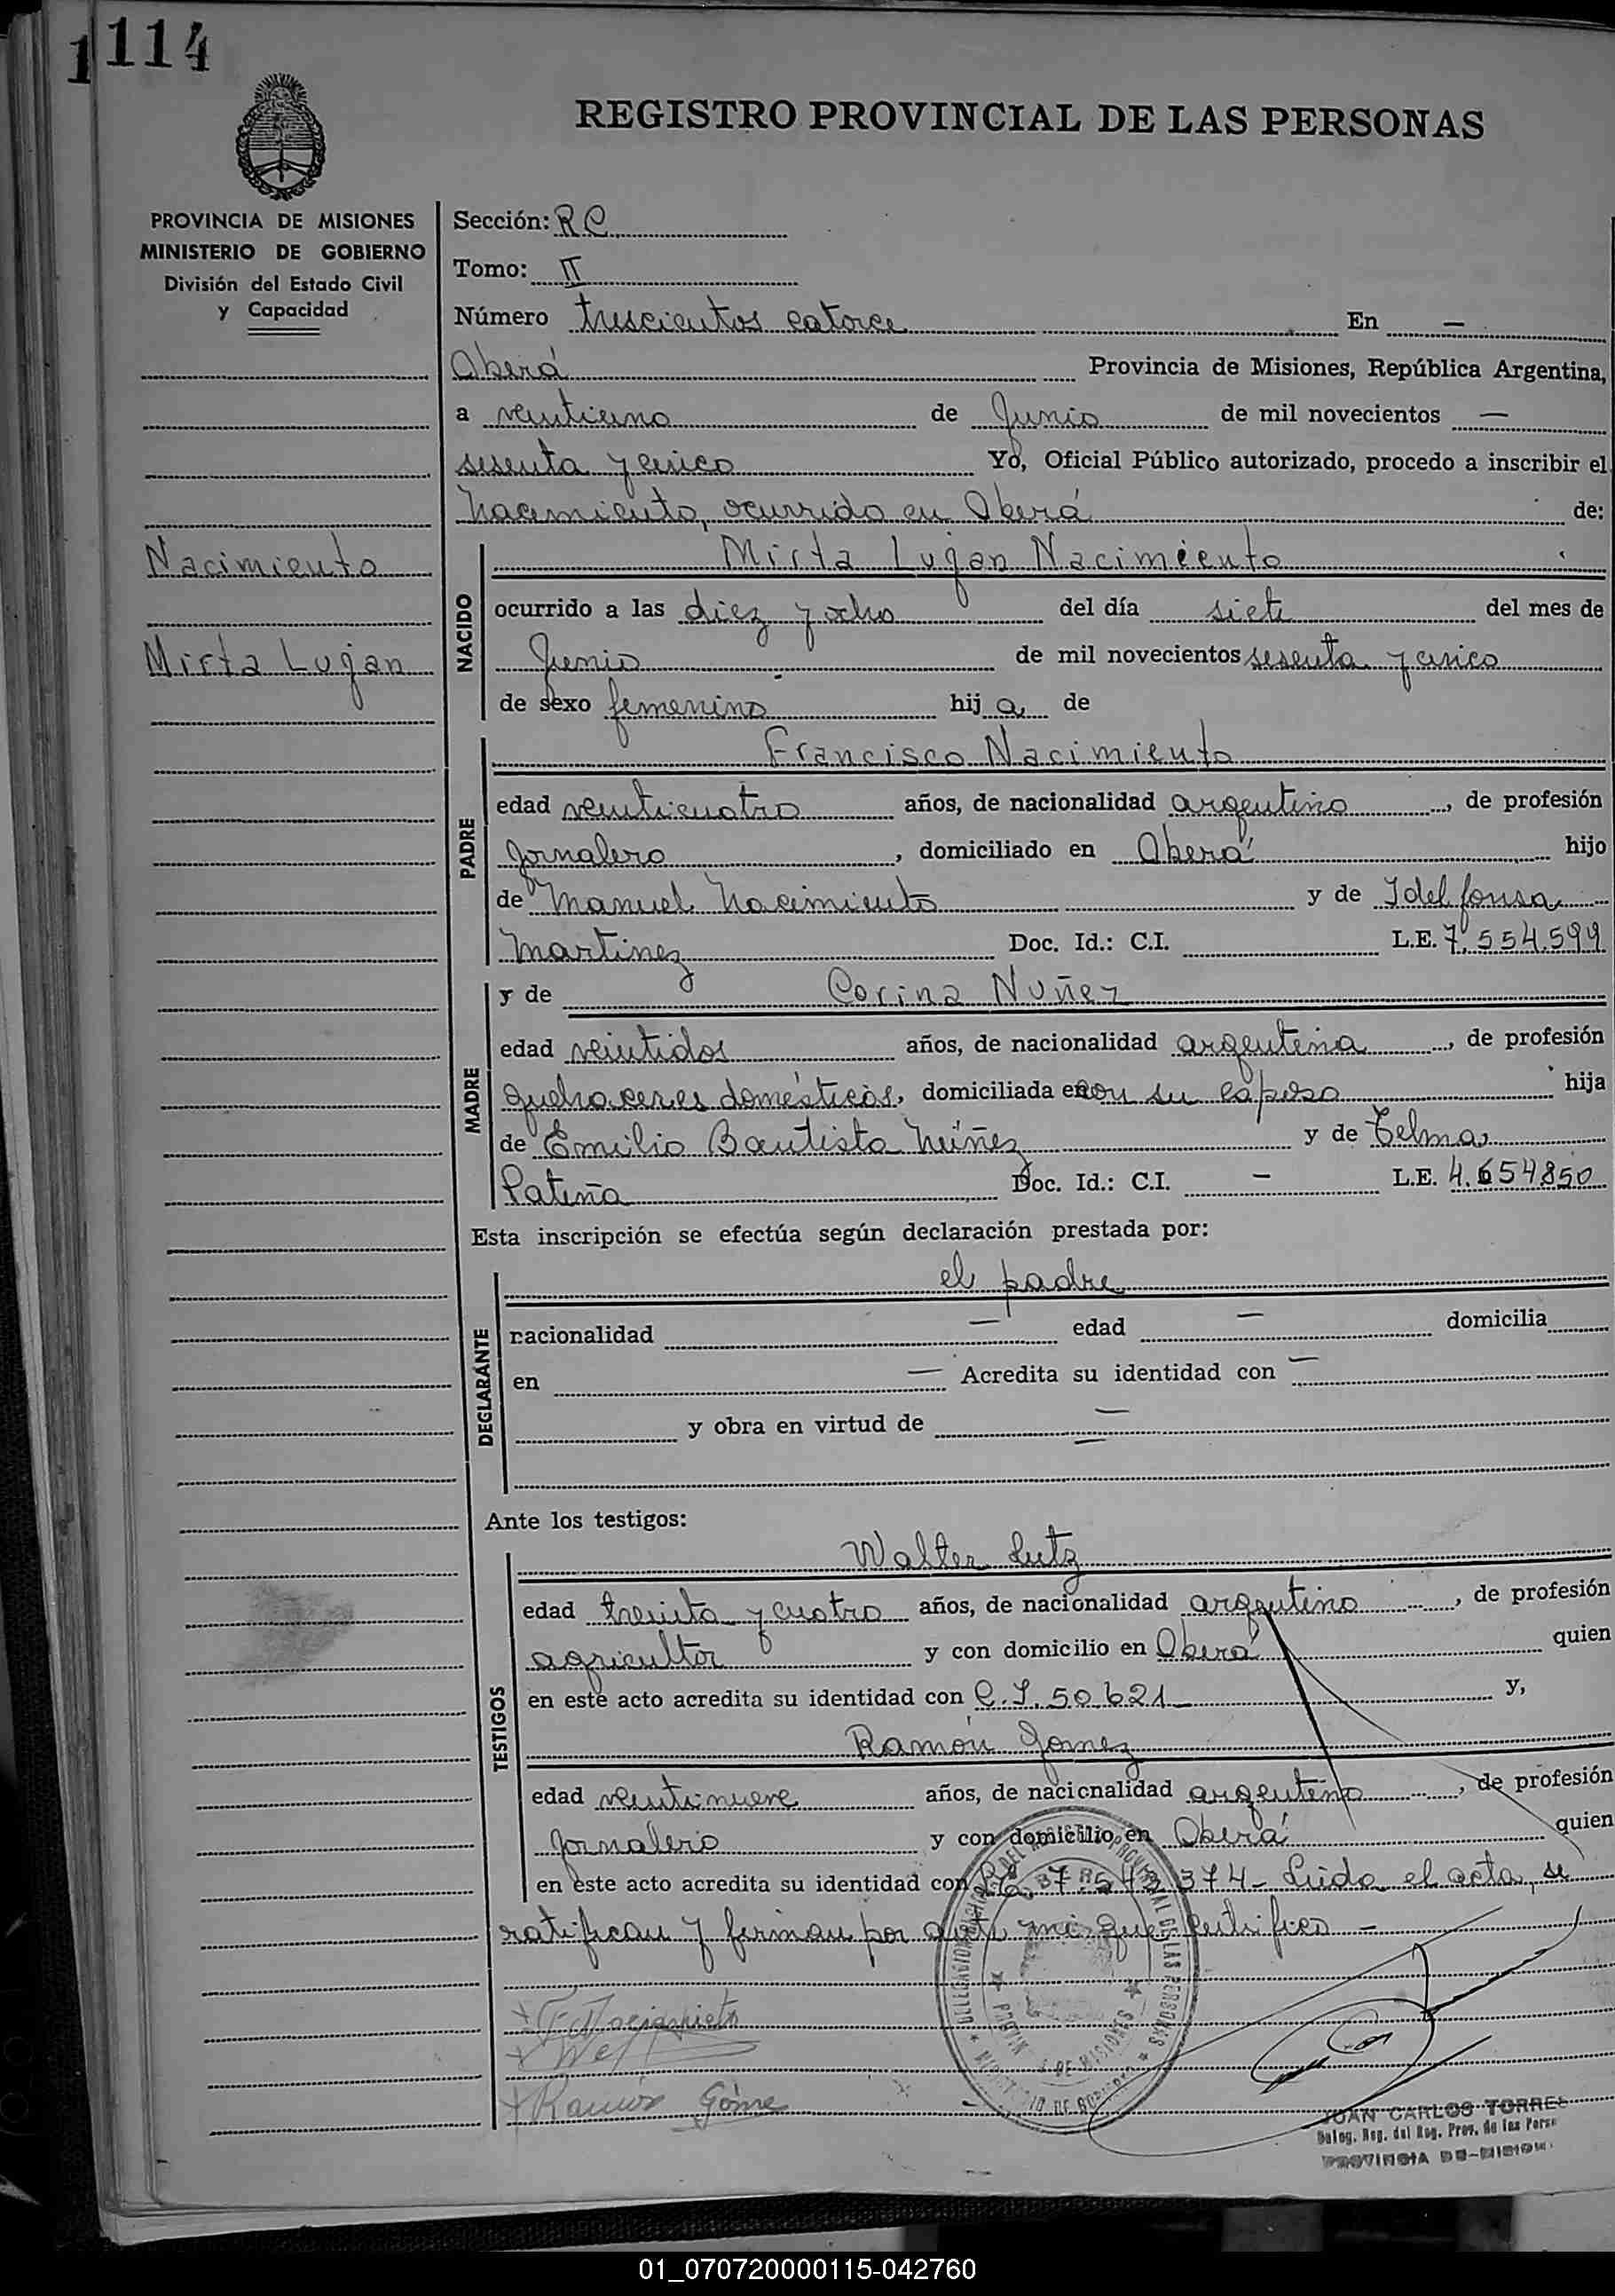 1 114
REGISTRO PROVINCIAL DE LAS PERSONAS
PROVINCIA DE MISIONES
MINISTERIO DE GOBIERNO
División del Estado Civil
y Capacidad
Sección: RC
Tomo: II
Número trescientos catorce En —
Oberá Provincia de Misiones, República Argentina,
a veintiuno de Junio de mil novecientos —
sesenta y cinco Yo, Oficial Público autorizado, procedo a inscribir el
Nacimiento, ocurrido en Oberá de:
Nacimiento
Mirta Lujan
NACIDO
Mirta Lujan Nacimiento
ocurrido a las diez y ocho del día siete del mes de
Junio de mil novecientos sesenta y cinco
de sexo femenino hij a de
PADRE
Francisco Nacimiento
edad veinticuatro años, de nacionalidad argentino, de profesión
Jornalero, domiciliado en Oberá hijo
de Manuel Nacimiento y de Idelfonsa
Martinez Doc. Id.: C.I. L.E. 7.554.599
MADRE
y de Corina Nuñez
edad veintidos años, de nacionalidad argentina, de profesión
quehaceres domésticos, domiciliada en con su esposo hija
de Emilio Bautista Núñez y de Telma
Patiña Doc. Id.: C.I. — L.E. 4.654850
Esta inscripción se efectúa según declaración prestada por:
DECLARANTE
el padre
nacionalidad — edad — domicilia
en — Acredita su identidad con —
y obra en virtud de —
—
Ante los testigos:
TESTIGOS
Walter Lutz
edad treinta y cuatro años, de nacionalidad argentino, de profesión
agricultor y con domicilio en Oberá quien
en este acto acredita su identidad con C.I. 50.621 y,
Ramón Gomez
edad veintinueve años, de nacionalidad argentino, de profesión
Jornalero y con domicilio en Oberá quien
en este acto acredita su identidad con 374- Leida el acta, se
ratifican y firman por ante mi que certifico —
F. Nacimiento
Ramón Góme
DEL PROVINCIAL DE LAS PERSONAS
DE MISIONES
JUAN CARLOS TORRES
Deleg. Reg. del Reg. Prov. de las Pers
PROVINCIA DE MISION
01_070720000115-042760